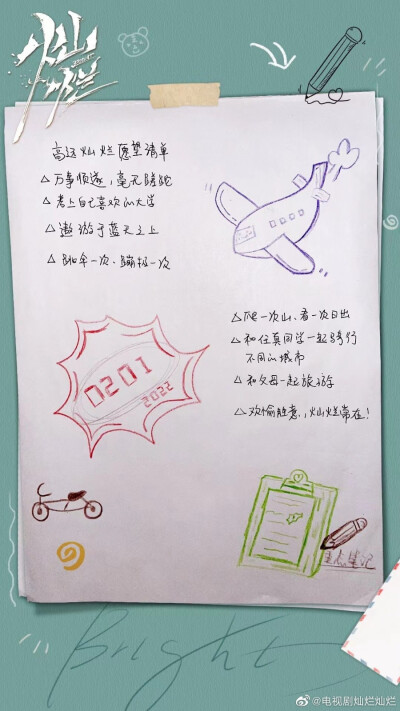 灿烂
高远灿烂愿望清单
△ 万事顺遂，毫无蹉跎
△ 考上自己喜欢的大学
△ 遨游于蓝天之上
△ 跳伞一次、蹦极一次
△ 爬一次山、看一次日出
△ 和任真同学一起骑行
不同的城市
△ 和父母一起旅游
△ 欢愉胜意，灿烂常在！
0201
2022
笔记
Bright
@电视剧灿烂灿烂